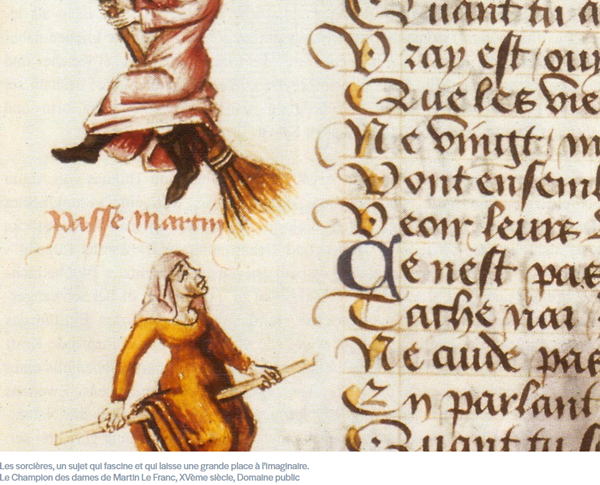 Quant tu a
Vray est / ouy
Que les vie
Ne vingt / m
Vont ensemb
passe martin
Veoir leurs
Ce nest pas
Tache
Ne cuide pas
En parlant
Quant tu s
Les sorcières, un sujet qui fascine et qui laisse une grande place à l'imaginaire.
Le Champion des dames de Martin Le Franc, XVème siècle, Domaine public